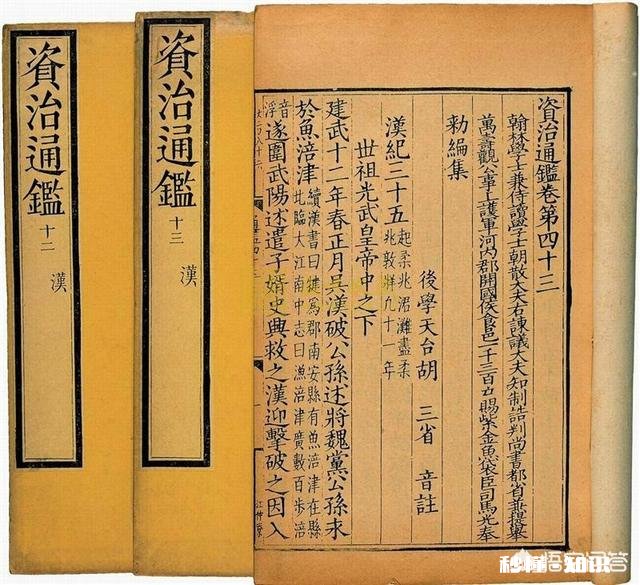 資治通鑑卷第四十三
翰林學士兼侍讀學士朝散大夫右諫議大夫知制誥判尚書都省兼提舉
萬壽觀公事上護軍河内郡開國侯食邑一千三百戶賜紫金魚袋臣司馬光奉
勑編集
後學天台胡 三省 音註
漢紀三十五 起柔兆涒灘盡柔兆敦牂凡十一年
世祖光武皇帝中之下
建武十二年春正月吳漢破公孫述將魏黨公孫永
於魚涪津 續漢書曰犍為郡南安縣有魚涪津在縣北臨大江南中志曰漁涪津廣數百步涪
音浮遂圍武陽述遣子婿史興救之漢迎擊破之因入
資治通鑑
十三
漢
資治通鑑
十二
漢
悟空问答